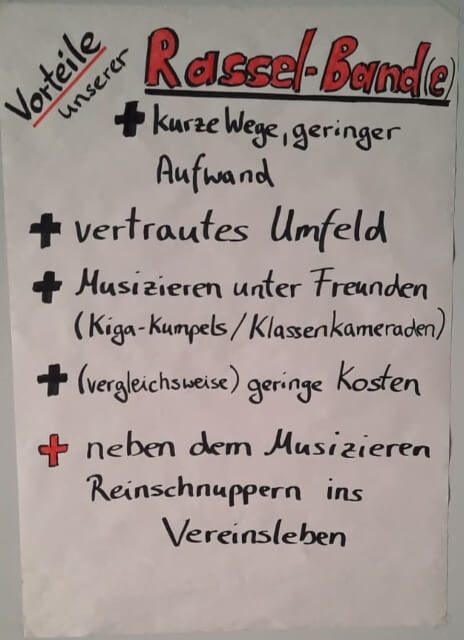 Vorteile
unserer
Rassel-Band(e)
+ kurze Wege, geringer
Aufwand
+ vertrautes Umfeld
+ Musizieren unter Freunden
(Kiga-Kumpels/Klassenkameraden)
+ (vergleichsweise) geringe Kosten
+ neben dem Musizieren
Reinschnuppern ins
Vereinsleben